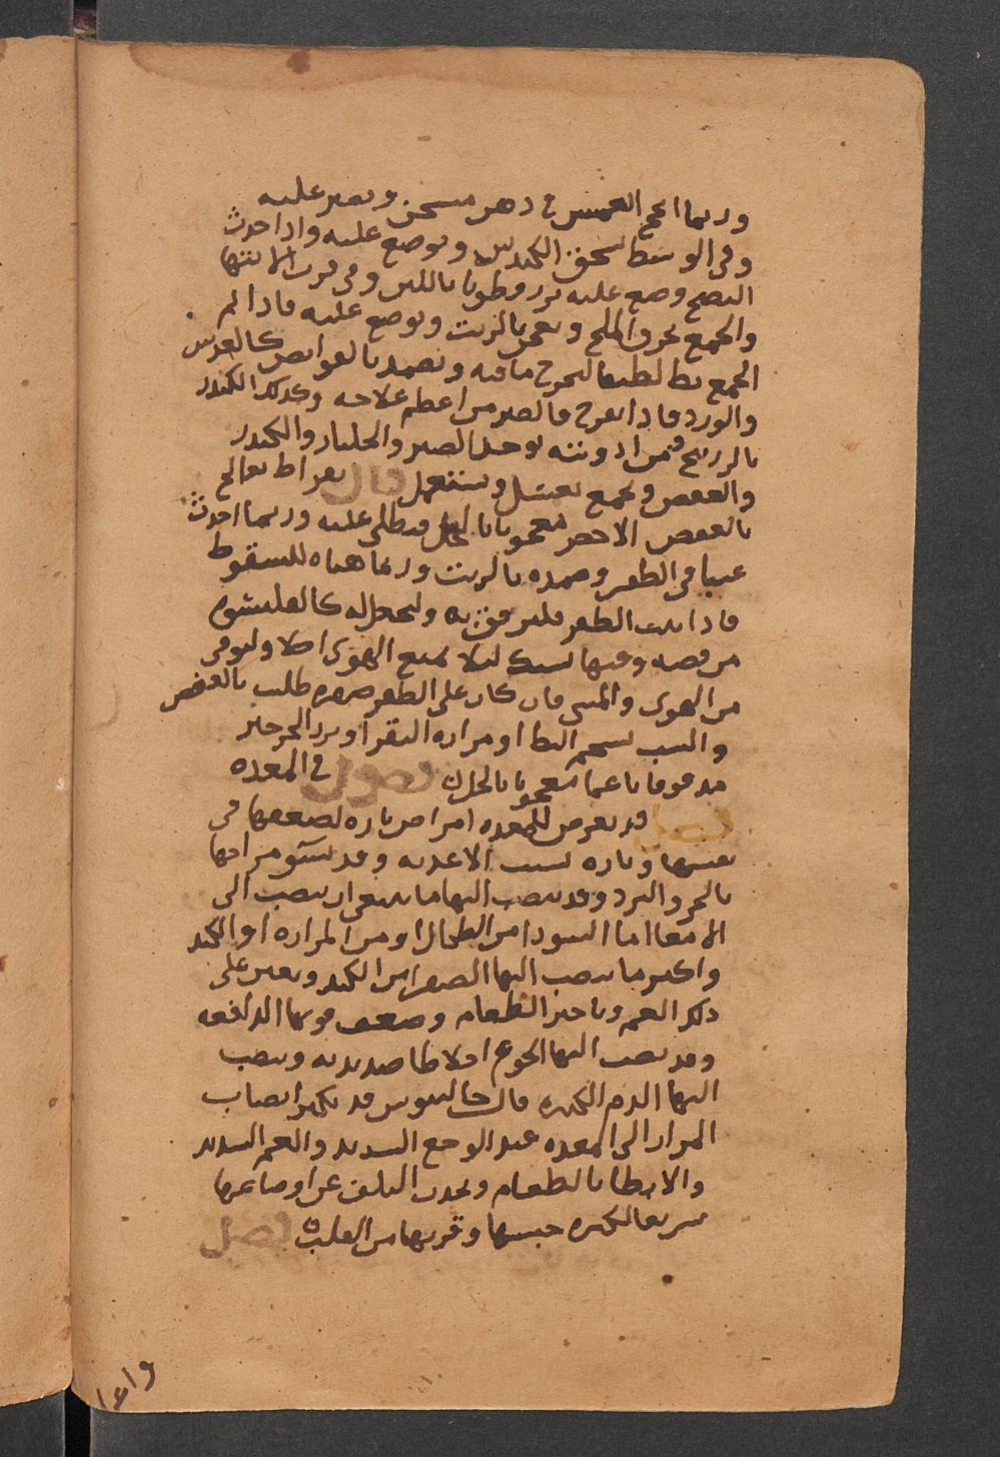 وربما انجح الغمس في دهن مسخن ويصبر عليه
وفي الوسط يسحق الكندس ويوضع عليه واذا حدث
النضج وضع عليه بزر قطونا باللبن وفي قرب الانتها
والجمع يحرق الملح ويعجن بالزيت ويوضع عليه فاذا لم
بط لطيفا ليخرج ما فيه ويضمد بالقوابض كالعدس
والورد فاذا تقرح فالصبر من اعظم علاجه وكذلك الكندر
بالزرنيخ ومن ادويته يوخذ الصبر والجلنار والكندر
والعفص ويجمع بعسل ويستعمل قال بقراط يعالج
بالعفص الاخضر معجونا بالخل يطلى عليه وربما احدث
عيبا في الظفر وضمده بالزيت وربما هياه للسقوط
فاذا نبت الظفر فليرفق به وليجعل له
من فضه وفيها لئلا يمنع الهوى اصلا وليوقى
من الهوى والمس فان كان على الظفر صفره طلب بالعفص
والشب بشحم البط او مراره البقر او بزر الجرجير
مدقوقا ناعما معجونا بالخل فصول في المعده
فصل قد يعرض للمعده امراض تاره لضعفها في
نفسها وتاره لسبب الاغذيه وقد يسو مزاجها
بالحر والبرد وقد ينصب اليها ما ينبغي ان ينصب الى
الامعا اما السودا من الطحال او من المراره او الكبد
واكثر ما ينصب اليها الصفرا من الكبد ويعين على
ذلك الغم وتاخير الطعام وضعف قوتها الدافعه
وقد ينصب اليها الجوع اخلاطا صديديه وينصب
اليها الدم الكثيره قال جالينوس قد يكثر انصاب
المرار الى المعده عند الوجع الشديد والغم الشديد
والابطا بالطعام ويحدث التلف عن اوجاعها
سريعا لكثره حسها وقربها من القلب فصل